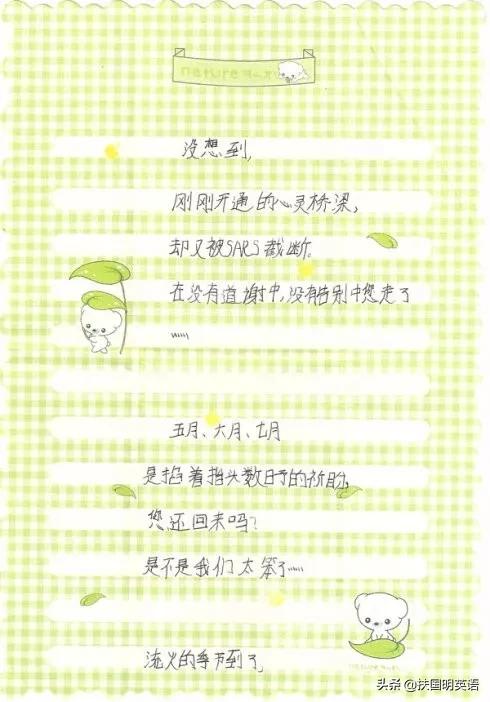 nature
没想到,
刚刚开通的心灵桥梁,
却又被SARS截断。
在没有道谢中,没有告别中您走了
......
五月、六月、七月
是掐着指头数日子的祈盼,
您还回来吗?
是不是我们太笨了......
流火的季节到了,
头条 @扶国明英语